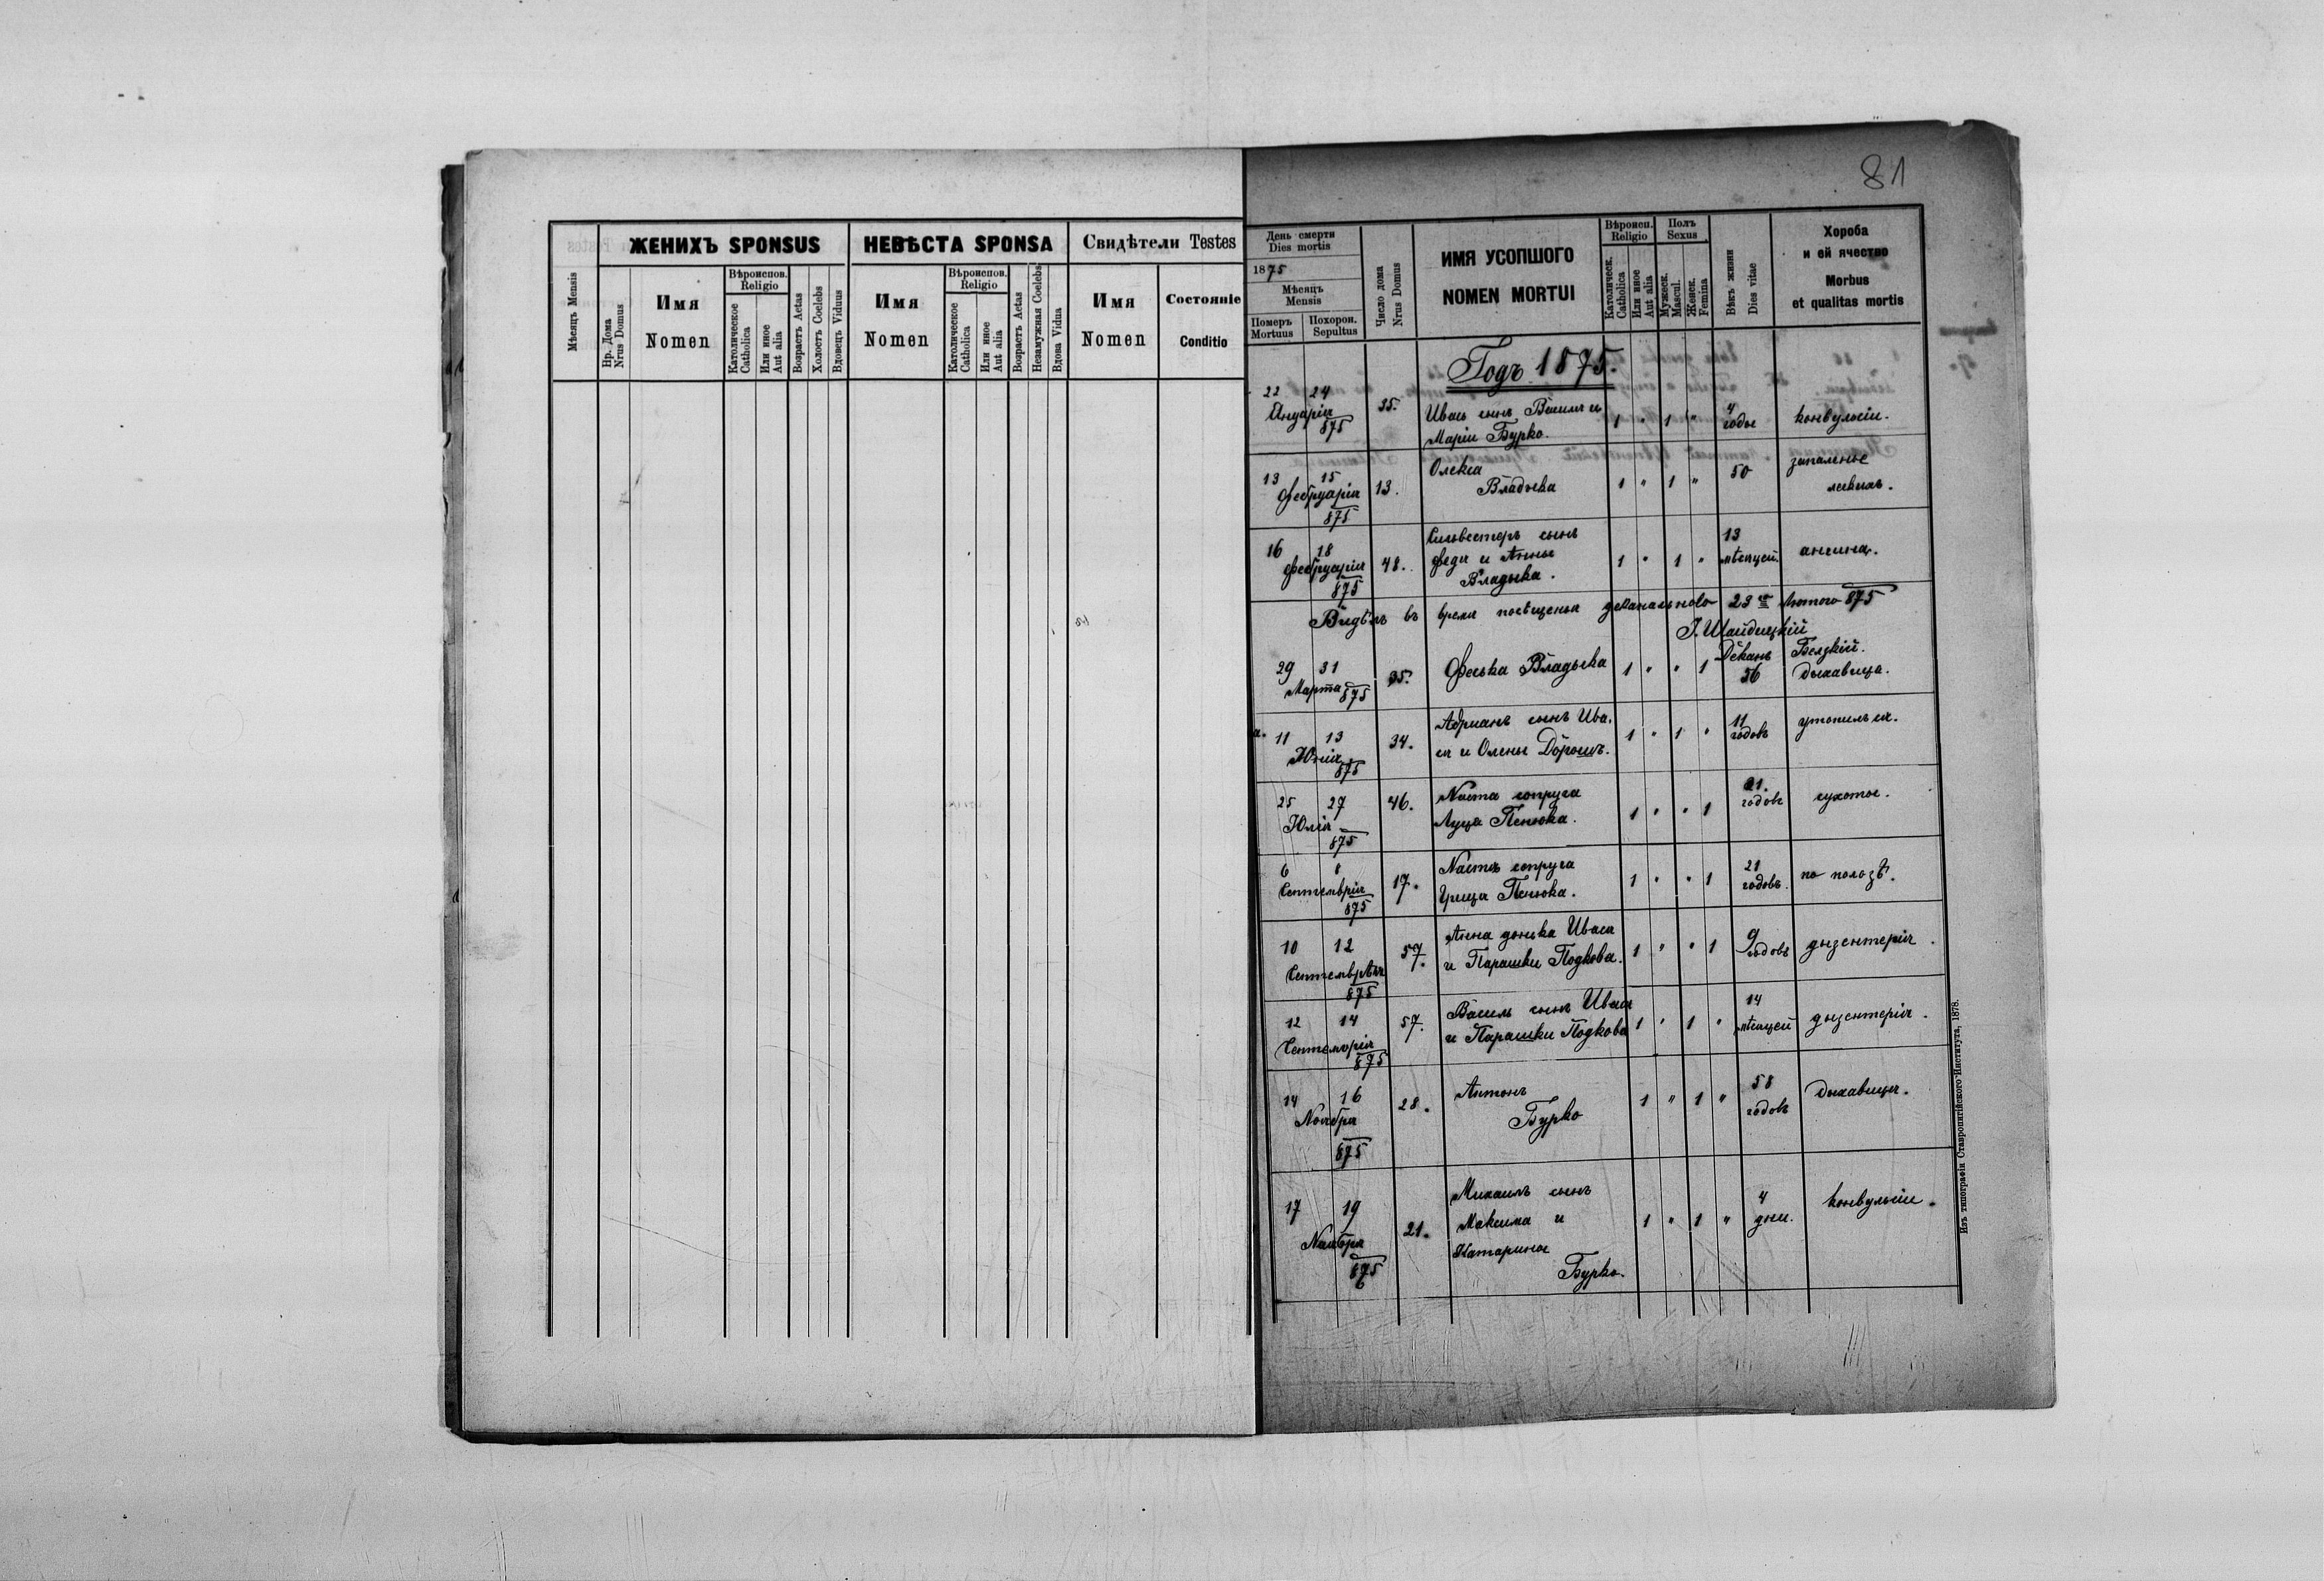 81
ЖЕНИХЪ SPONSUS
НЕВѢСТА SPONSA
Свидѣтели Testes
Мѣсяцъ Mensis
Нр. Дома
Nrus Domus
Имя
Nomen
Вѣроиспов.
Religio
Католическое
Catholica
Или иное
Aut alia
Возрастъ Aetas
Холостъ Coelebs
Вдовецъ Viduus
Имя
Nomen
Вѣроиспов.
Religio
Католическое
Catholica
Или иное
Aut alia
Возрастъ Aetas
Незамужная Coelebs
Вдова Vidua
Имя
Nomen
Состоянiе
Conditio
День смерти
Dies mortis
1875
Мѣсяцъ
Mensis
Померъ
Mortuus
Похорон.
Sepultus
Число дома
Nrus Domus
ИМЯ УСОПШОГО
NOMEN MORTUI
Вѣроисп.
Religio
Католическ.
Catholica
Или иное
Aut alia
Полъ
Sexus
Мужеск.
Mascul.
Женск.
Femina
Вѣкъ жизни
Dies vitae
Хороба
и ей ячество
Morbus
et qualitas mortis
Годъ 1875.
22 24
Януарія
875
35.
Ивась сынъ Василя и
Маріи Бурко.
1 " 1 "
4
годы
конвульсіи.
13 15
Фебруарія
875
13.
Олекса
Владыка
1 " 1 "
50
запаленье
легкихъ.
16 18
Фебруарія
875
48.
Сильвестеръ сынъ
Федя и Анны
Владыка.
1 " 1 "
13
мѣсяцей.
ангина.
Видѣлъ въ время посѣщенья деканального 23 го Лютого 875
Деканъ Белзкій.
29 31
Марта 875
35.
Феська Владыка
1 " " 1
56
дыхавица.
11 13
Юнія
875
34.
Адріанъ сынъ Ива-
ся и Олены Дорошъ.
1 " 1 "
11
годовъ
утопилъ ся.
25 27
Юлія
875
46.
Наста супруга
Луця Пенюка.
1 " " 1
21.
годовъ
сухоты.
6 8
Септемврія
875
17.
Настя супруга
Гриця Пенюка.
1 " " 1
21
годовъ.
по полозѣ.
10 12
Септемврія
875
57.
Анна донька Ивася
и Парашки Подкова.
1 " " 1
9
годовъ
дызентерія.
12 14
Септемврія
875
57.
Василь сынъ Ивася
и Парашки Подкова
1 " 1 "
14
мѣсяцей
дызентерія.
14 16
Ноября
875
28.
Антонъ
Бурко
1 " 1 "
58
годовъ
дыхавиця.
17 19
Ноября
875
21.
Михаилъ сынъ
Максима и
Катарины
Бурко.
1 " 1 "
4
дни.
конвульсіи.
Изъ типографіи Ставропигійского Института, 1878.